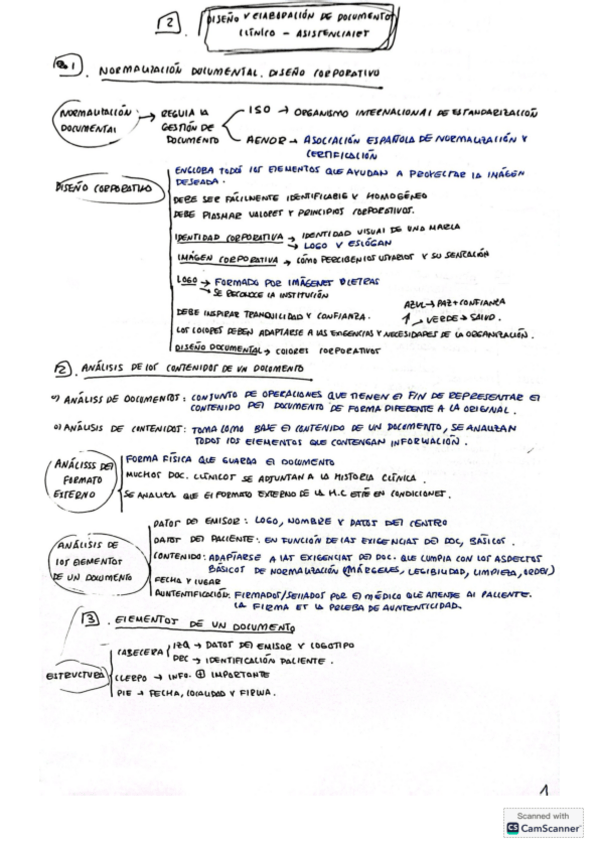 2 DISEÑO Y ELABORACIÓN DE DOCUMENTO
CLÍNICO - ASISTENCIALES
1. NORMALIZACIÓN DOCUMENTAL. DISEÑO CORPORATIVO
NORMALIZACIÓN DOCUMENTAL → REGULA LA GESTIÓN DE DOCUMENTO
ISO → ORGANISMO INTERNACIONAL DE ESTANDARIZACIÓN
AENOR → ASOCIACIÓN ESPAÑOLA DE NORMALIZACIÓN Y
CERTIFICACIÓN
DISEÑO CORPORATIVO
ENGLOBA TODOS LOS ELEMENTOS QUE AYUDAN A PROYECTAR LA IMÁGEN
DESEADA.
DEBE SER FÁCILMENTE IDENTIFICABLE Y HOMOGÉNEO
DEBE PLASMAR VALORES Y PRINCIPIOS CORPORATIVOS.
IDENTIDAD CORPORATIVA → IDENTIDAD VISUAL DE UNA MARCA
→ LOGO Y ESLÓGAN
IMÁGEN CORPORATIVA → CÓMO PERCIBEN LOS USUARIOS Y SU SENSACIÓN
LOGO → FORMADO POR IMÁGENES O LETRAS
→ SE RECONOCE LA INSTITUCIÓN
AZUL → PAZ + CONFIANZA
DEBE INSPIRAR TRANQUILIDAD Y CONFIANZA.
→ VERDE → SALUD.
LOS COLORES DEBEN ADAPTARSE A LAS EXIGENCIAS Y NECESIDADES DE LA ORGANIZACIÓN.
DISEÑO DOCUMENTAL → COLORES CORPORATIVOS
2. ANÁLISIS DE LOS CONTENIDOS DE UN DOCUMENTO
ANÁLISIS DE DOCUMENTOS: CONJUNTO DE OPERACIONES QUE TIENEN EL FIN DE REPRESENTAR EL
CONTENIDO DEL DOCUMENTO DE FORMA DIFERENTE A LA ORIGINAL.
ANÁLISIS DE CONTENIDOS: TOMA COMO BASE EL CONTENIDO DE UN DOCUMENTO, SE ANALIZAN
TODOS LOS ELEMENTOS QUE CONTENGAN INFORMACIÓN.
ANÁLISIS DEL FORMATO EXTERNO
FORMA FÍSICA QUE GUARDA EL DOCUMENTO
MUCHOS DOC. CLÍNICOS SE ADJUNTAN A LA HISTORIA CLÍNICA.
SE ANALIZA QUE EL FORMATO EXTERNO DE LA H.C ESTÉ EN CONDICIONES.
ANÁLISIS DE LOS ELEMENTOS DE UN DOCUMENTO
DATOS DEL EMISOR: LOGO, NOMBRE Y DATOS DEL CENTRO
DATOS DEL PACIENTE: EN FUNCIÓN DE LAS EXIGENCIAS DEL DOC, BÁSICOS.
CONTENIDO: ADAPTARSE A LAS EXIGENCIAS DEL DOC. QUE CUMPLA CON LOS ASPECTOS
BÁSICOS DE NORMALIZACIÓN (MÁRGENES, LEGIBILIDAD, LIMPIEZA, ORDEN)
FECHA Y LUGAR
AUNTENTIFICACIÓN: FIRMADOS/SELLADOS POR EL MÉDICO QUE ATIENTE AL PACIENTE.
LA FIRMA ES LA PRUEBA DE AUNTENTICIDAD.
3. ELEMENTOS DE UN DOCUMENTO
ESTRUCTURA
CABECERA IZQ → DATOS DEL EMISOR Y LOGOTIPO
DREC → IDENTIFICACIÓN PACIENTE.
CUERPO → INFO. + IMPORTANTE
PIE → FECHA, LOCALIDAD Y FIRMA.
1
Scanned with
CS CamScanner